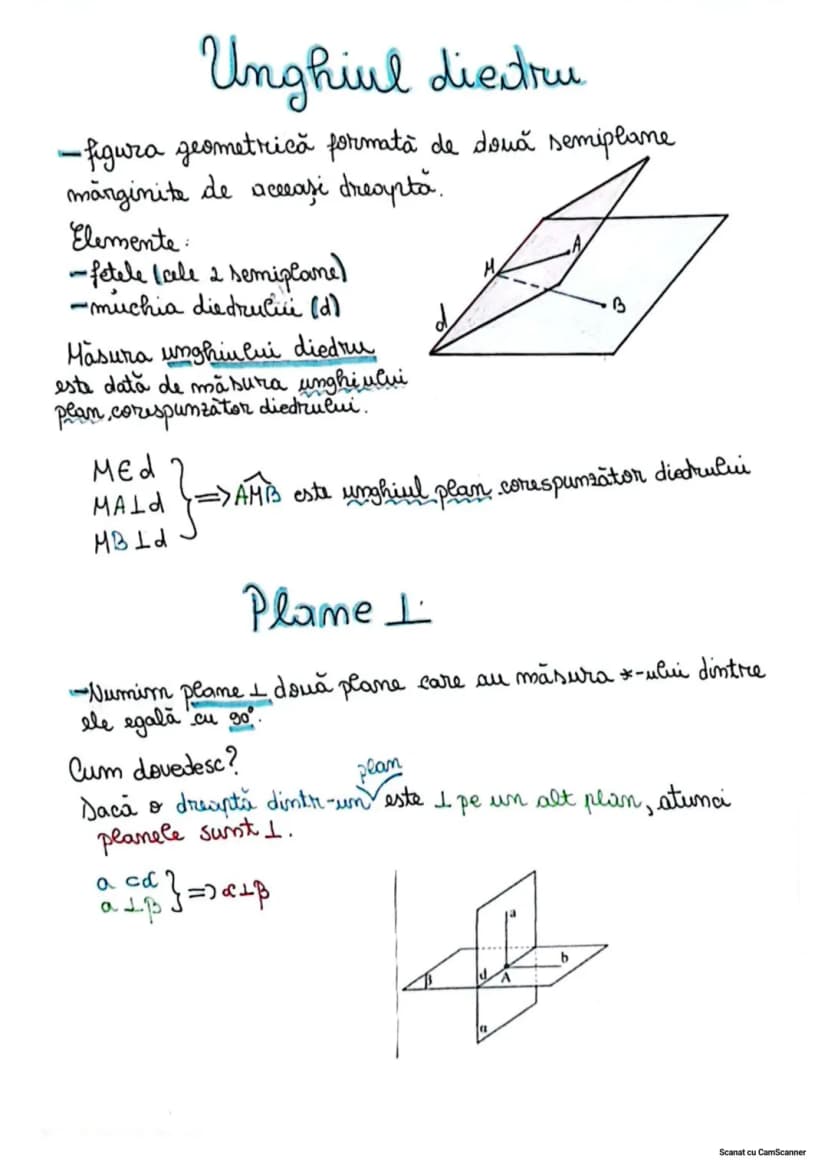 Unghiul diedru
-figura geometrică formată de două semiplane
mărginite de aceeași dreaptă.
Elemente:
-fetele (cele 2 semiplane)
-muchia diedrului (d)
Măsura unghiului diedru
este dată de măsura unghiului
plan corespunzător diedrului.
M
A
B
d
M∈d
MA⊥d
MB⊥d
} => AMB este unghiul plan corespunzător diedrului
Plane ⊥
-Numim plane ⊥ două plane care au măsura ∢-ului dintre
ele egală cu 90°.
Cum dovedesc?
plan
Dacă o dreaptă dintr-un este ⊥ pe un alt plan, atunci
planele sunt ⊥.
a ⊂α
a ⊥β
} => α⊥β
a
b
d
A
β
α
Scanat cu CamScanner